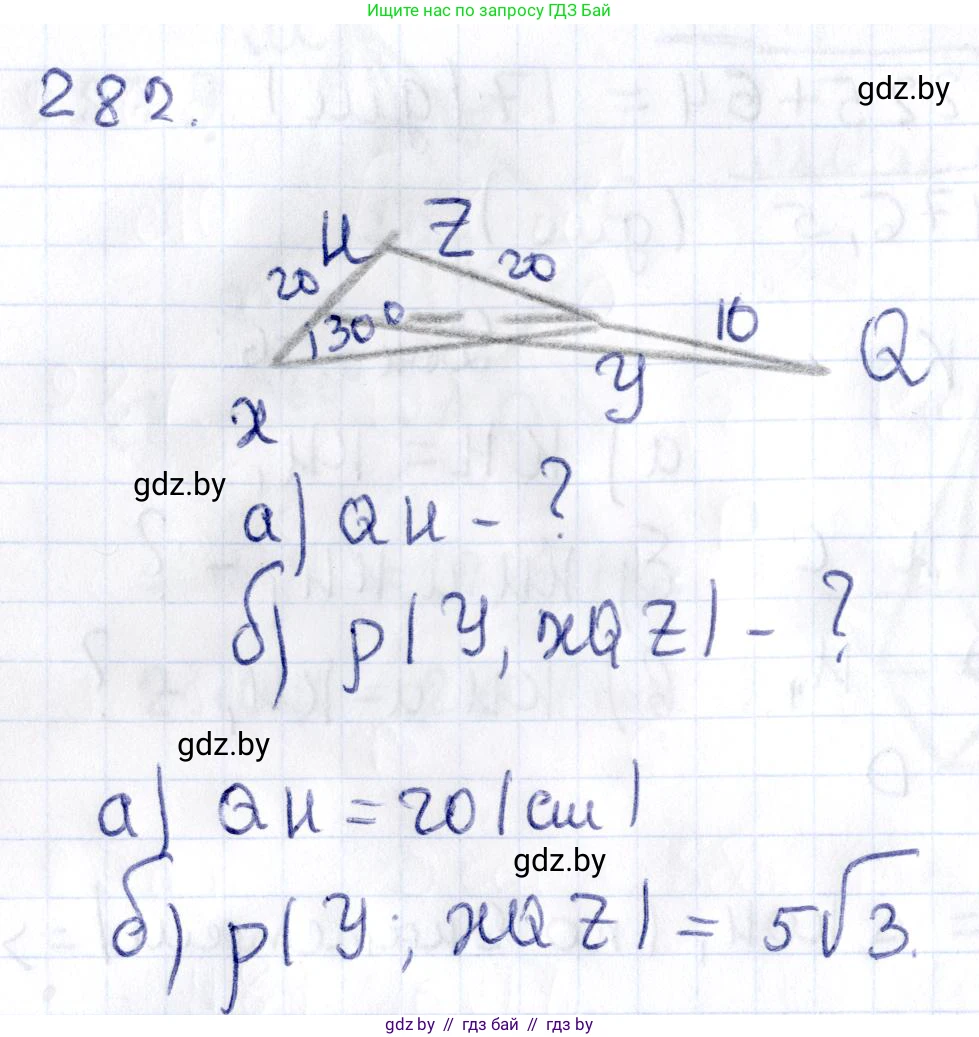 Ищите нас по запросу ГДЗ Бай
282.
gdz.by
H Z
20 20
130° 10
Q
x y
gdz.by
а) QH - ?
б) ρ(Y, XQZ) - ?
gdz.by
а) QH = 20 (см)
gdz.by
б) ρ(Y; XQZ) = 5√3.
gdz.by // гдз бай // gdz.by